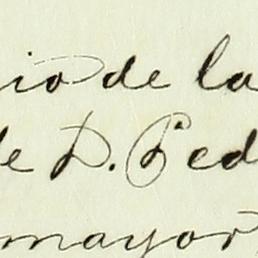 io de la
de D. Ped
mayor